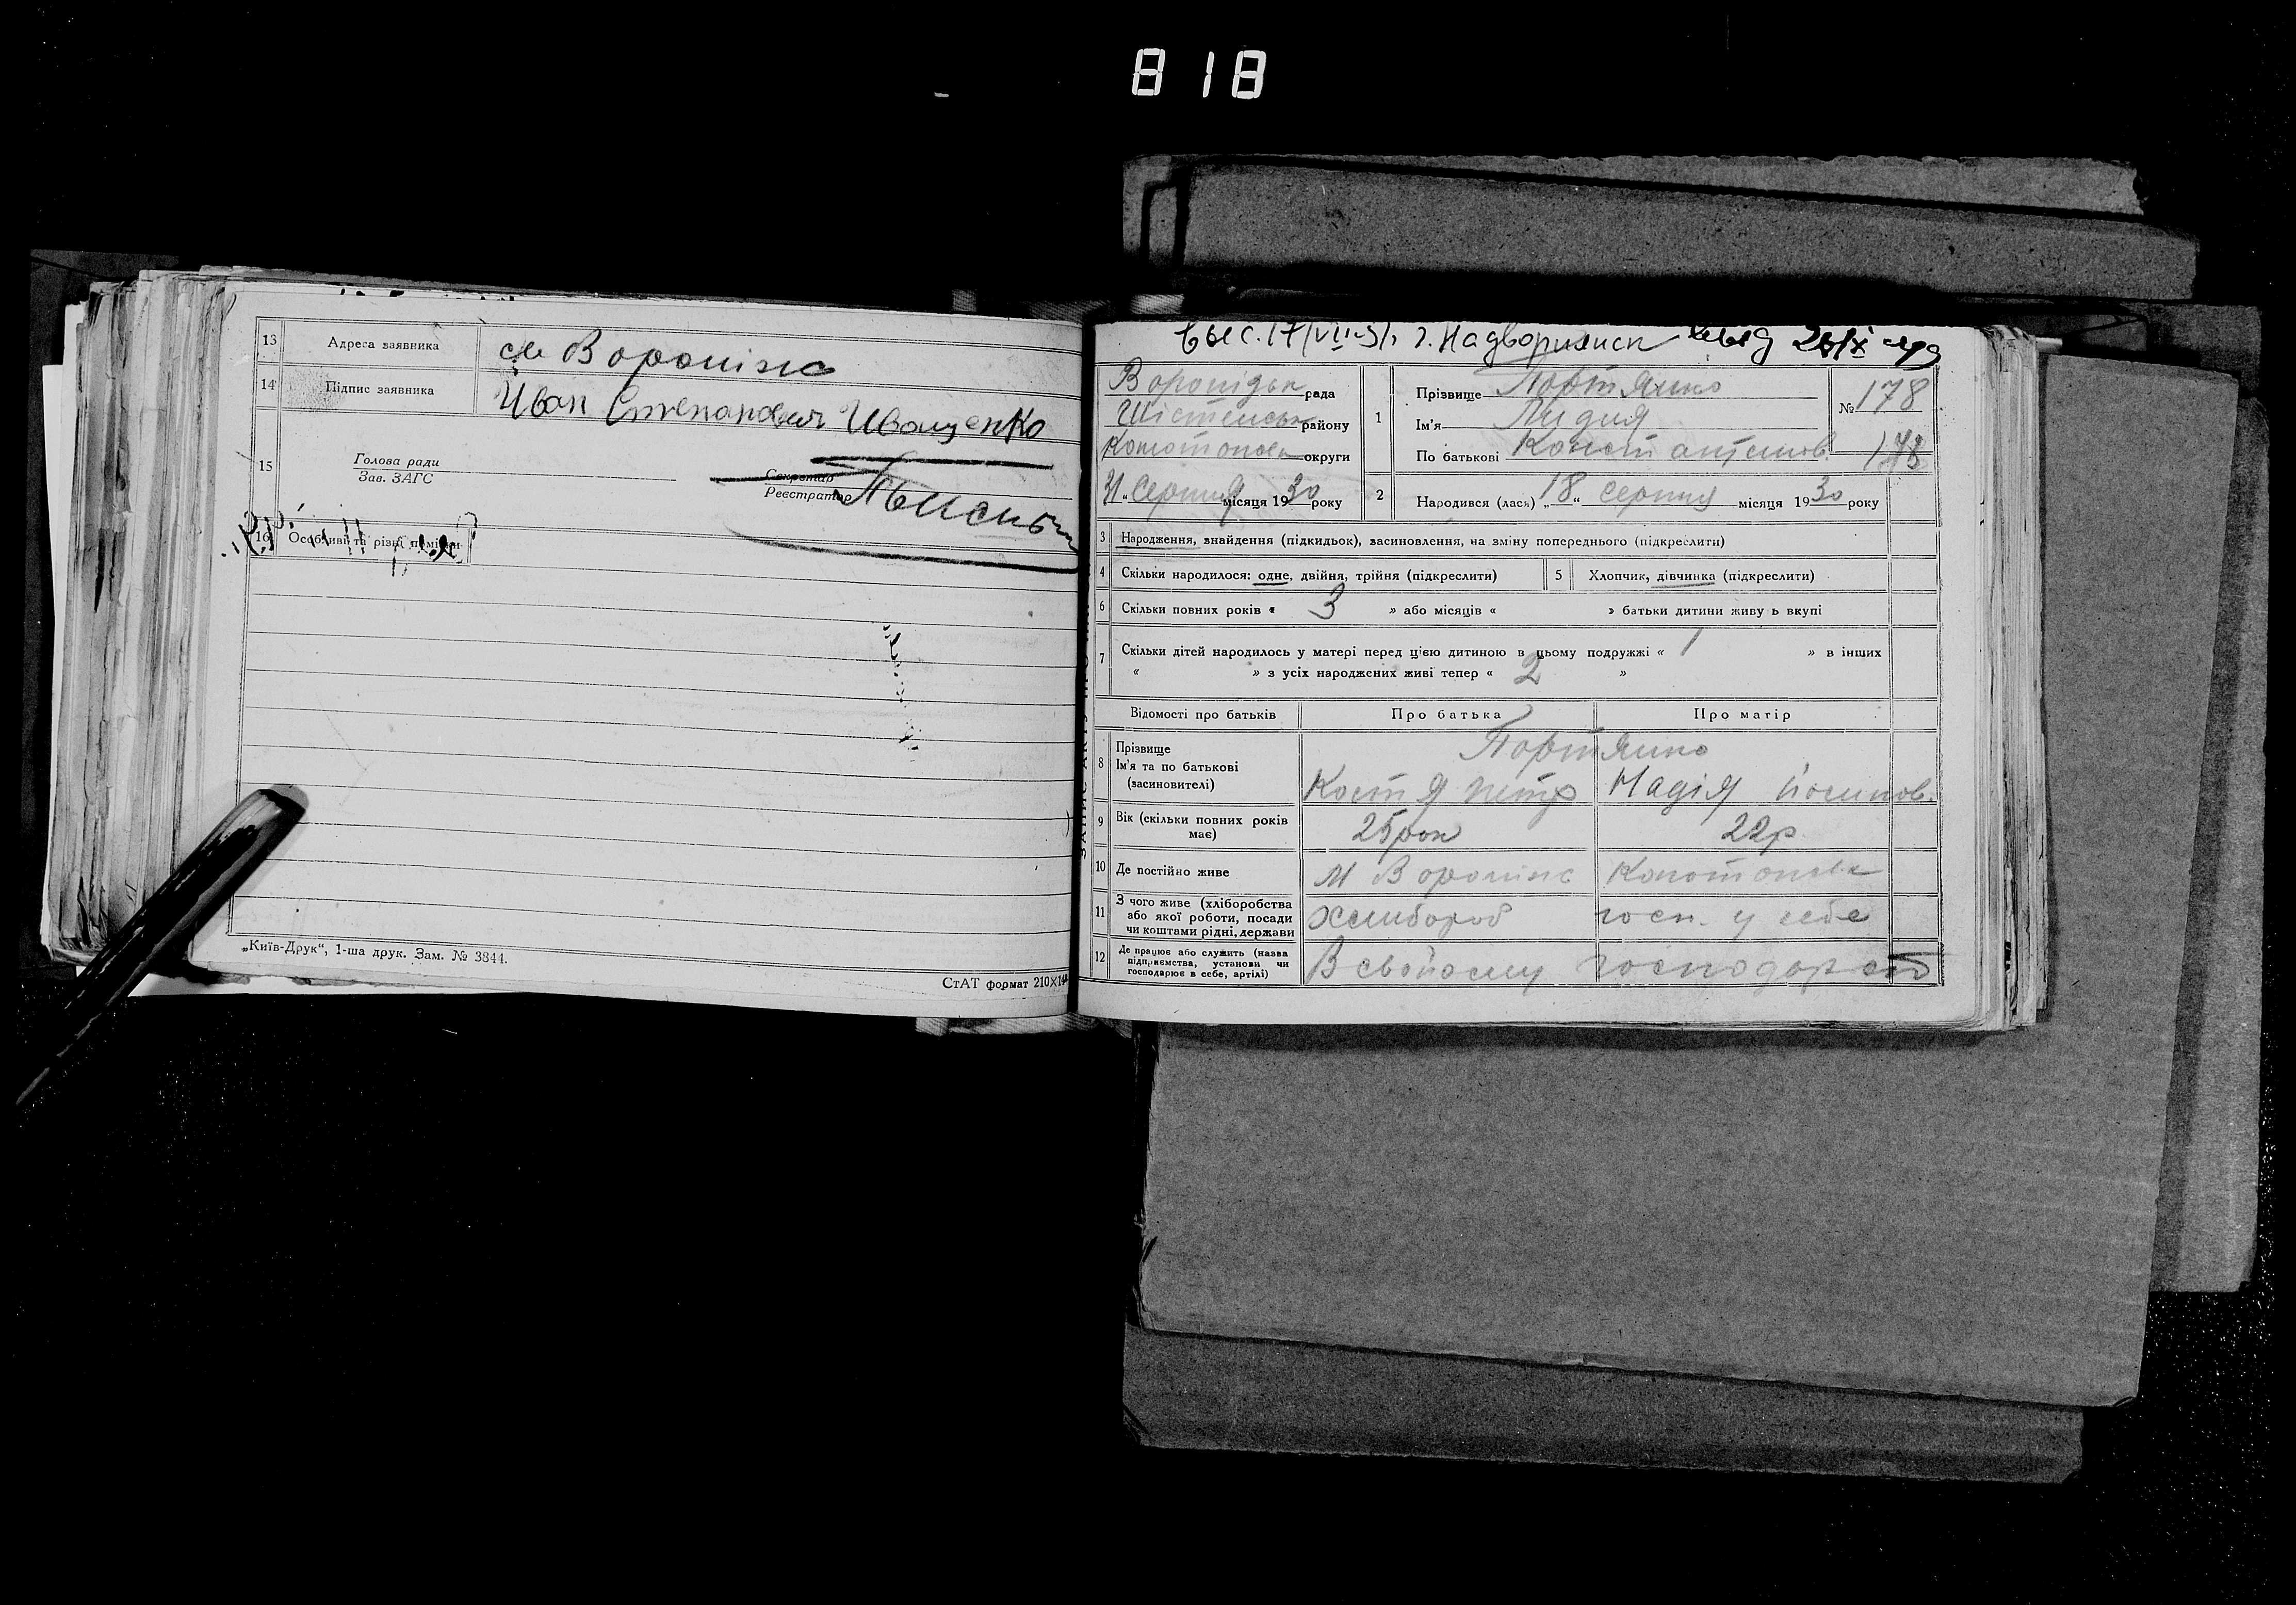 818
13 Адреса заявника см Вороніж
14 Підпис заявника Иван Степанович Иващенко
15 Голова ради
Зав. ЗАГС
Секретар
Реєстратор
16 Особливі та різні помітки
„Київ-Друк“, 1-ша друк. Зам. № 3844.
СтАТ формат 210×14
г. Надворнянск
рада
району
округи
31 „Серпня місяця 1930 року
1 Прізвище Портянко
Ім'я Лидия
По батькові Константинов.
№ 178
178
2 Народився (лася) „18“ серпня місяця 1930 року
3 Народження, знайдення (підкидьок), засиновлення, на зміну попереднього (підкреслити)
4 Скільки народилося: одне, двійня, трійня (підкреслити) 5 Хлопчик, дівчинка (підкреслити)
6 Скільки повних років « 3 » або місяців « » батьки дитини живу ь вкупі
7 Скільки дітей народилось у матері перед цією дитиною в цьому подружжі « 1 » в інших
« » з усіх народжених живі тепер « 2 »
Відомості про батьків Про батька Про матір
8 Прізвище Портянко
Ім'я та по батькові
(засиновителі) Костя Петр Надія Йосипов.
9 Вік (скільки повних років має) 25 рок 22 р.
10 Де постійно живе М Вороніж
11 З чого живе (хліборобства
або якої роботи, посади
чи коштами рідні, держави Хлибороб госп. у себе
12 Де працює або служить (назва
підприємства, установи чи
господарює в себе, артілі) В свойому господарст